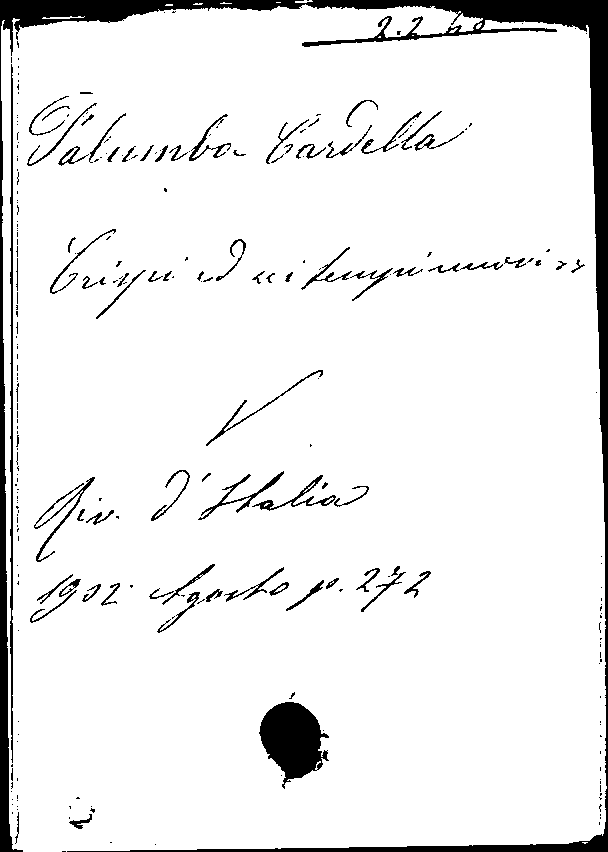 2.2 40
Palumbo Cardella
Crispi ed «i tempi nuovi»
V
Riv. d'Italia
1902. Agosto p. 272